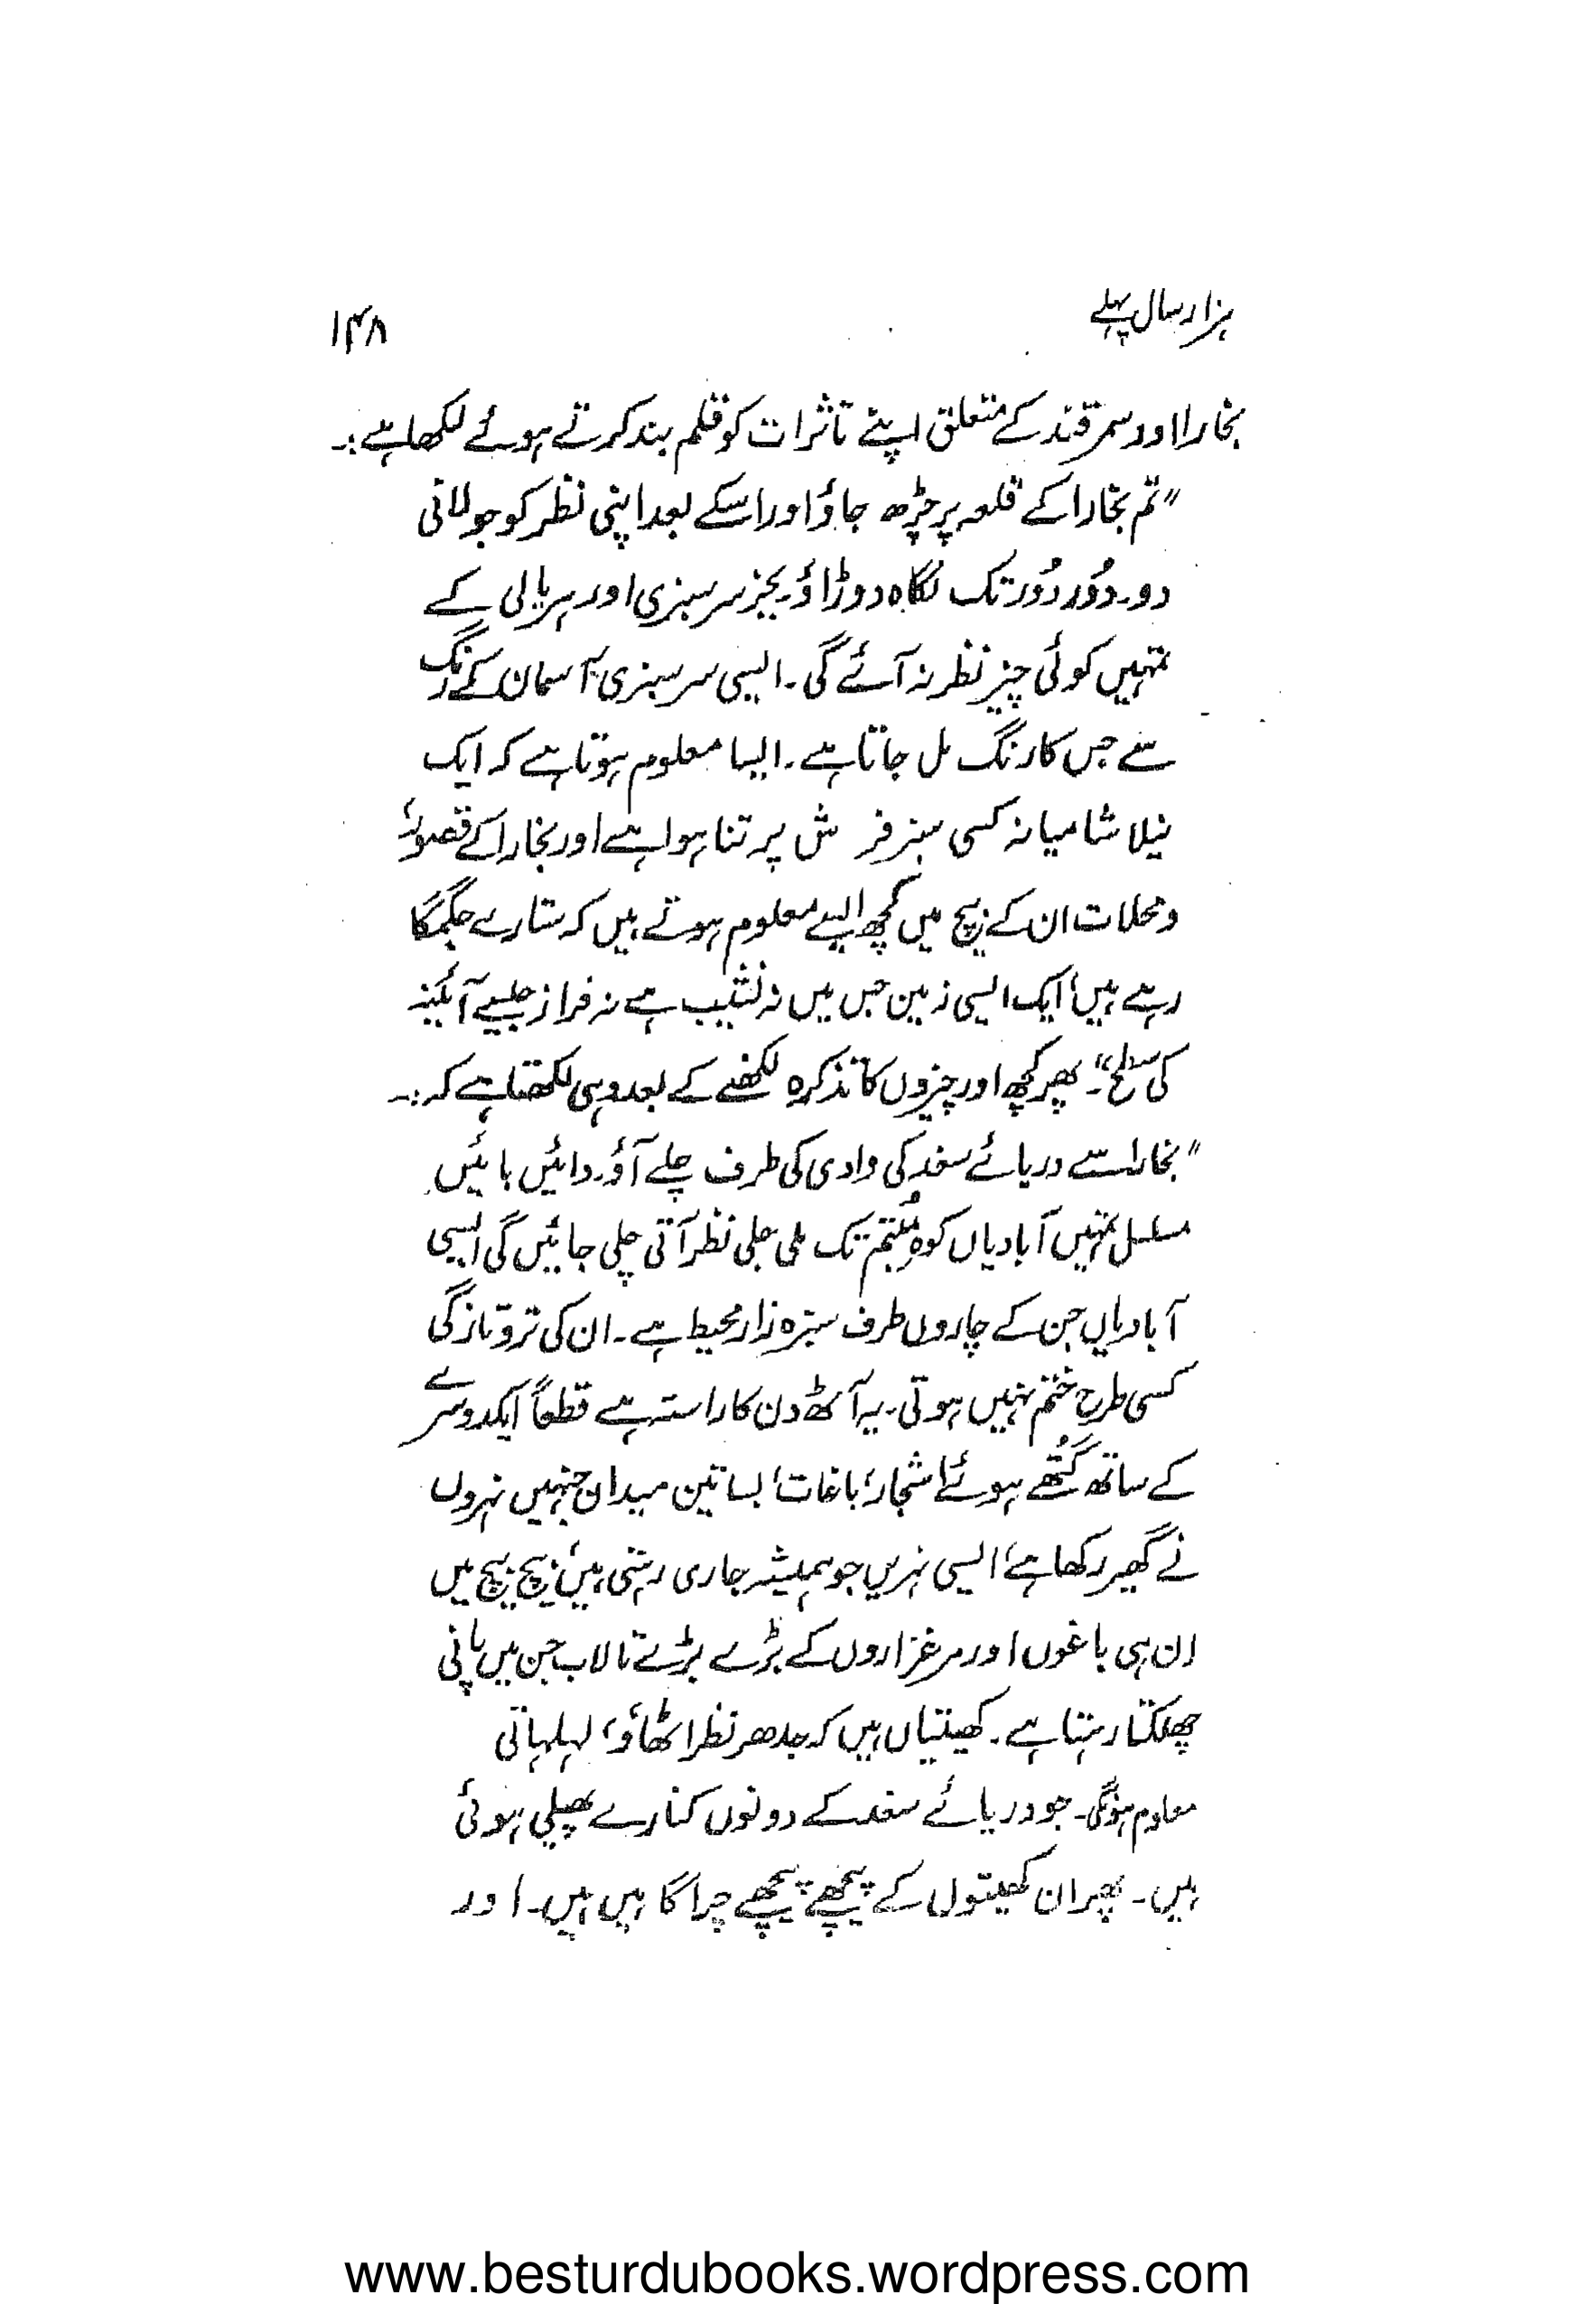 ہزار سال پہلے
۱۴۸
بخارا اور سمرقند کے متعلق اپنے تاثرات کو قلم بند کرتے ہوئے لکھا ہے :۔
"تم بخارا کے قلعہ پر چڑھ جاؤ اور اسکے بعد اپنی نظر کو جولانی
دو۔ دُور دُور تک نگاہ دوڑاؤ۔ بجز سرسبزی اور ہریالی کے
تمہیں کوئی چیز نظر نہ آئے گی۔ ایسی سرسبزی، آسمان کے رنگ
سے جس کا رنگ مل جاتا ہے۔ ایسا معلوم ہوتا ہے کہ ایک
نیلا شامیانہ کسی سبز فرش پر تنا ہوا ہے اور بخارا کے قصور
و محلات ان کے بیچ میں کچھ ایسے معلوم ہوتے ہیں کہ ستارے جگمگا
رہے ہیں، ایک ایسی زمین جس میں نہ نشیب ہے نہ فراز جیسے آئینہ
کی سطح"۔ پھر کچھ اور چیزوں کا تذکرہ لکھنے کے بعد وہی لکھتا ہے کہ :۔
"بخارا سے دریائے سغد کی وادی کی طرف چلے آؤ۔ دائیں بائیں
مسلسل تمہیں آبادیاں کوہِ بُتم تک ملی جلی نظر آتی چلی جائیں گی ایسی
آبادیاں جن کے چاروں طرف سبزہ زار محیط ہے۔ ان کی تروتازگی
کسی طرح ختم نہیں ہوتی۔ یہ آٹھ دن کا راستہ ہے قطعاً ایکدوسرے
کے ساتھ گتُھے ہوئے اشجار، باغات، بساتین میدان جنہیں نہروں
نے گھیر رکھا ہے، ایسی نہریں جو ہمیشہ جاری رہتی ہیں، بیچ بیچ میں
ان ہی باغوں اور مرغزاروں کے بڑے بڑے تالاب جن میں پانی
چھلکتا رہتا ہے۔ کھیتیاں ہیں کہ جدھر نظر اٹھاؤ، لہلہاتی
معلوم ہونگی۔ جو دریائے سغد کے دونوں کنارے پھیلی ہوئی
ہیں۔ پھر ان کھیتوں کے پیچھے پیچھے چراگاہیں ہیں۔ اور
www.besturdubooks.wordpress.com